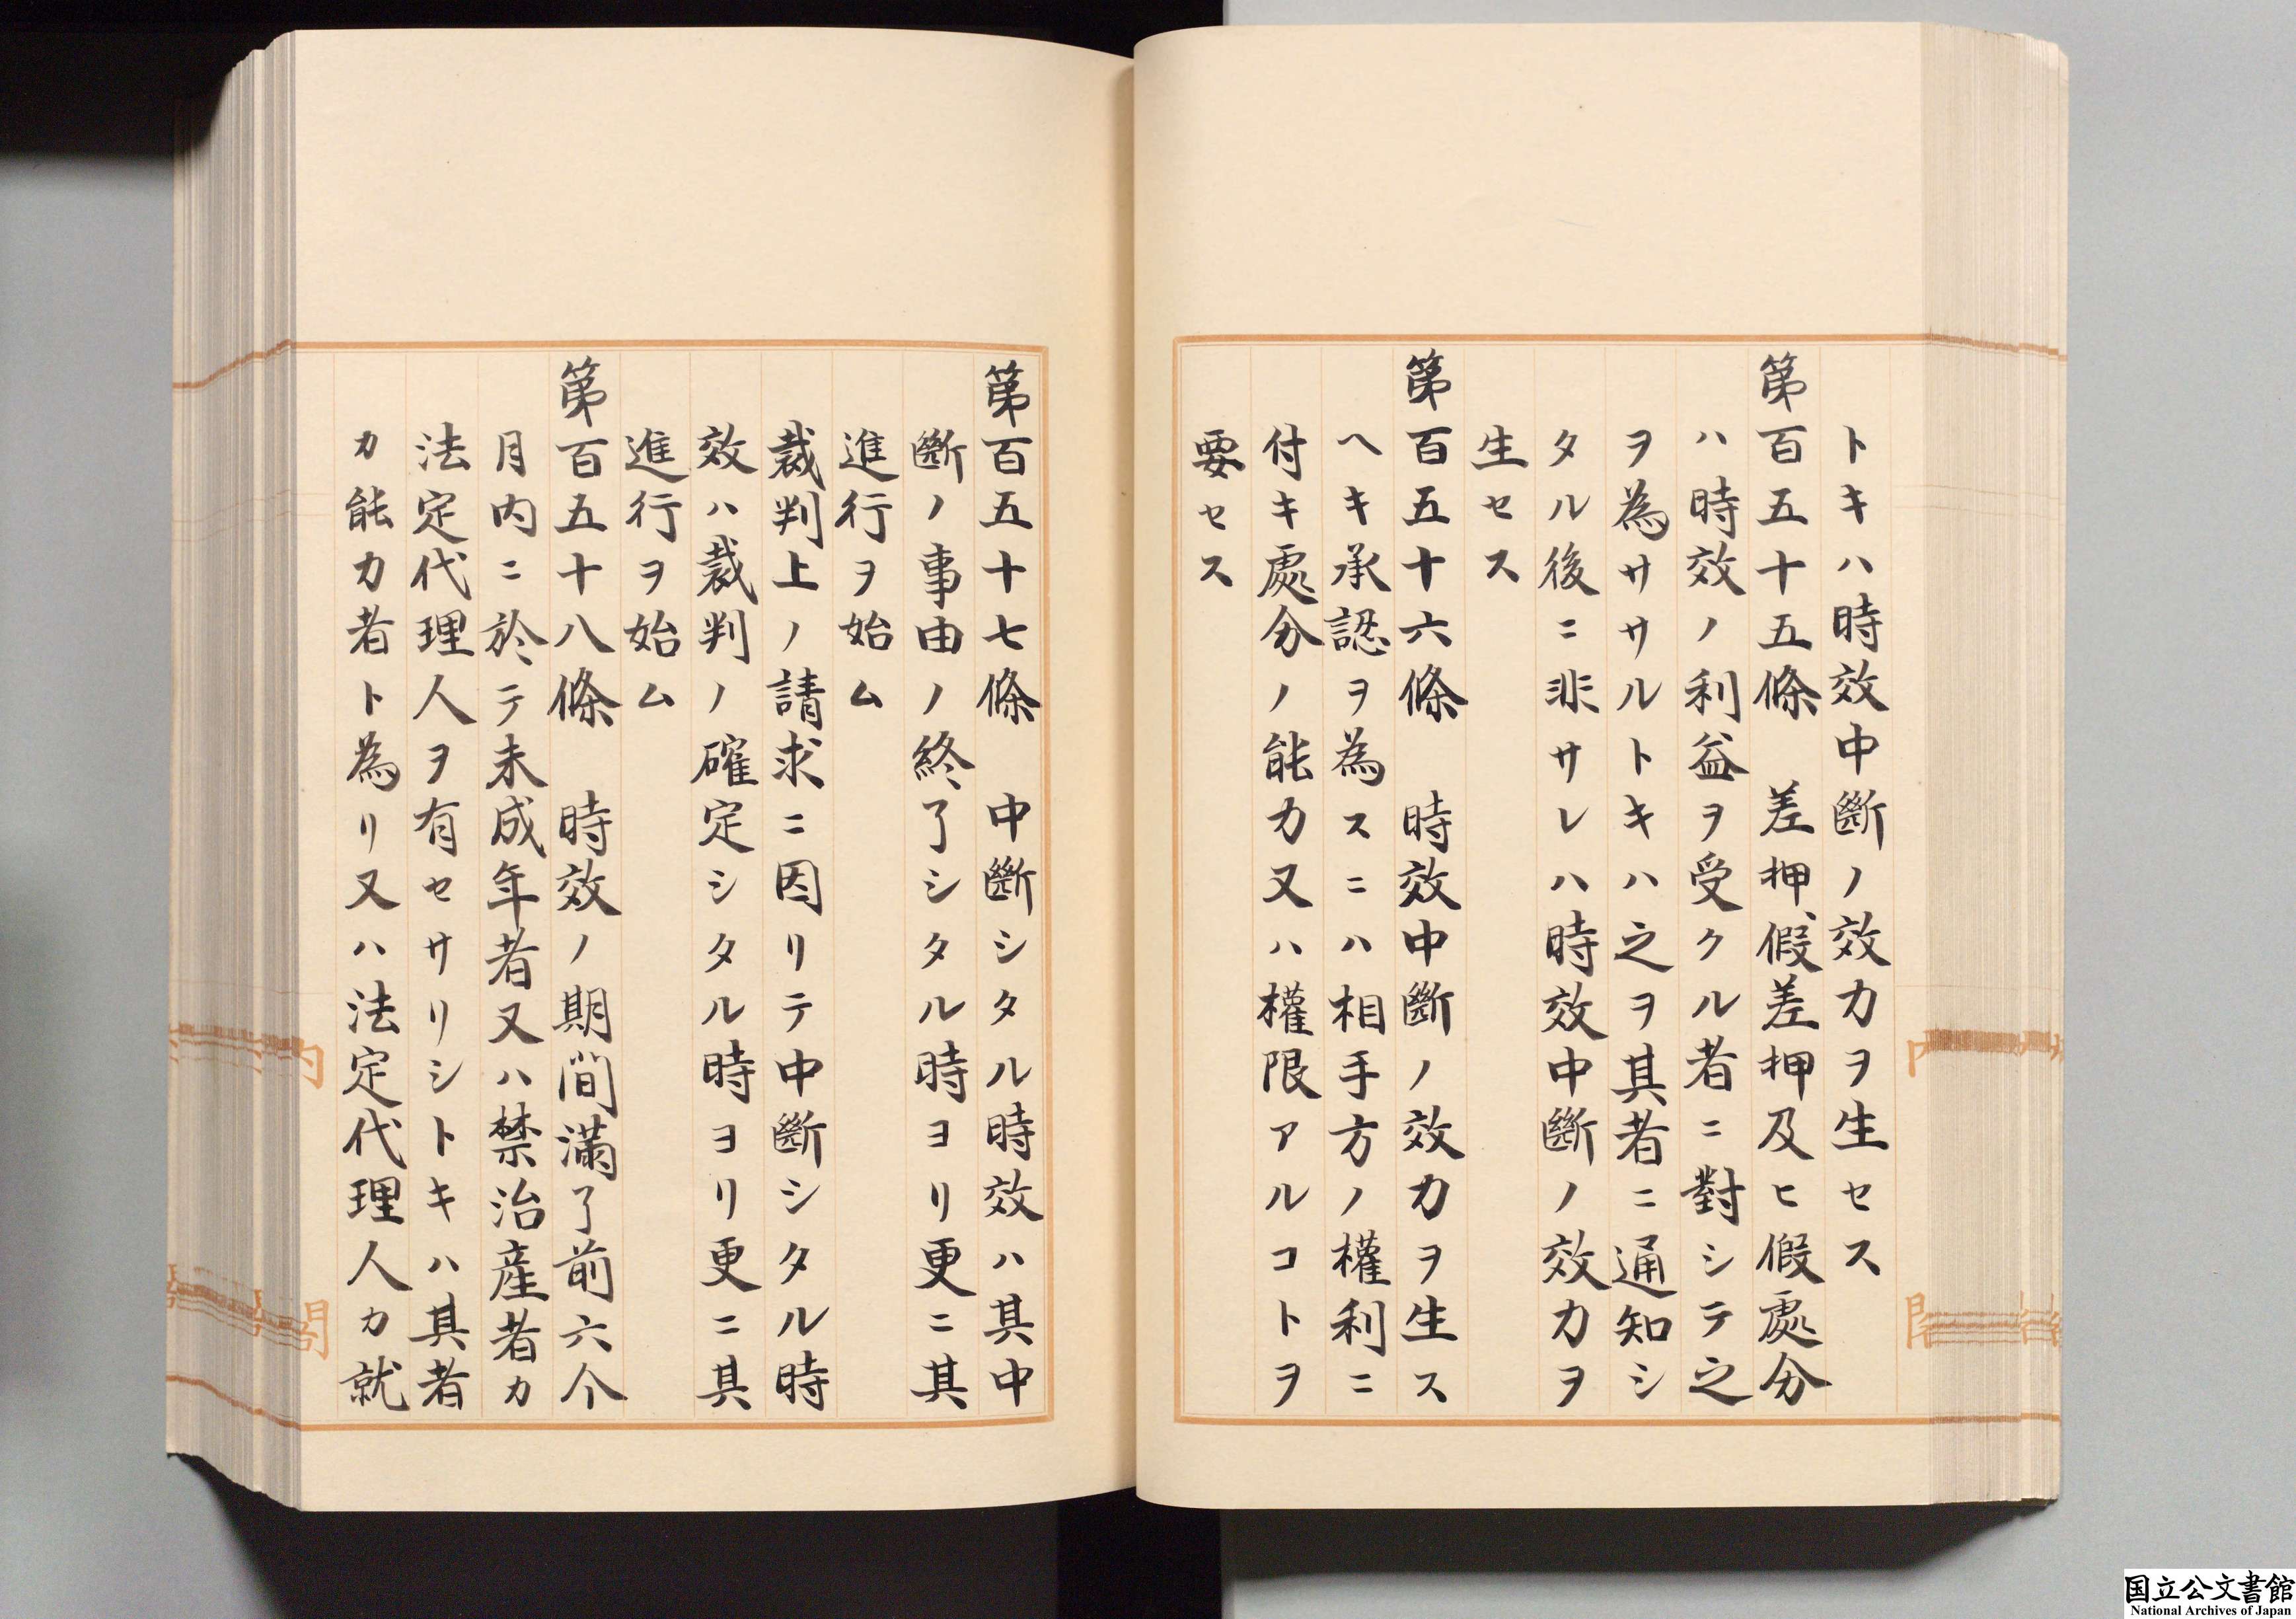 トキハ時效中斷ノ效力ヲ生セス
第百五十五條　差押、假差押及ヒ假處分
ハ時效ノ利益ヲ受クル者ニ對シテ之
ヲ為ササルトキハ之ヲ其者ニ通知シ
タル後ニ非サレハ時效中斷ノ效力ヲ
生セス
第百五十六條　時效中斷ノ效力ヲ生ス
ヘキ承認ヲ為スニハ相手方ノ權利ニ
付キ處分ノ能力又ハ權限アルコトヲ
要セス
第百五十七條　中斷シタル時效ハ其中
斷ノ事由ノ終了シタル時ヨリ更ニ其
進行ヲ始ム
裁判上ノ請求ニ因リテ中斷シタル時
效ハ裁判ノ確定シタル時ヨリ更ニ其
進行ヲ始ム
第百五十八條　時效ノ期間滿了前六个
月内ニ於テ未成年者又ハ禁治產者カ
法定代理人ヲ有セサリシトキハ其者
カ能力者ト為リ又ハ法定代理人カ就
内
閣
国立公文書館
National Archives of Japan